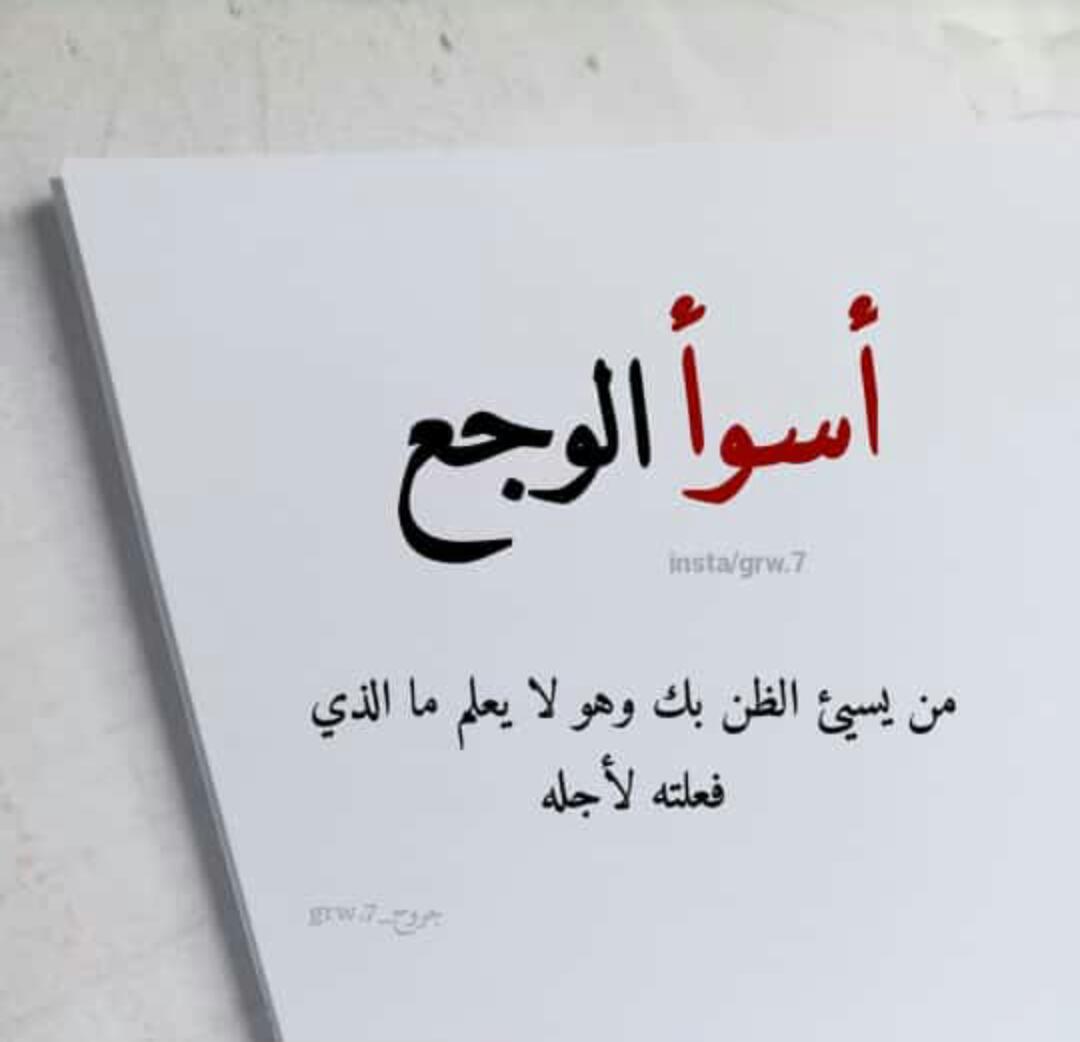 أسوأ الوجع
insta/grw.7
من يسيئ الظن بك وهو لا يعلم ما الذي
فعلته لأجله
جروح_grw.7